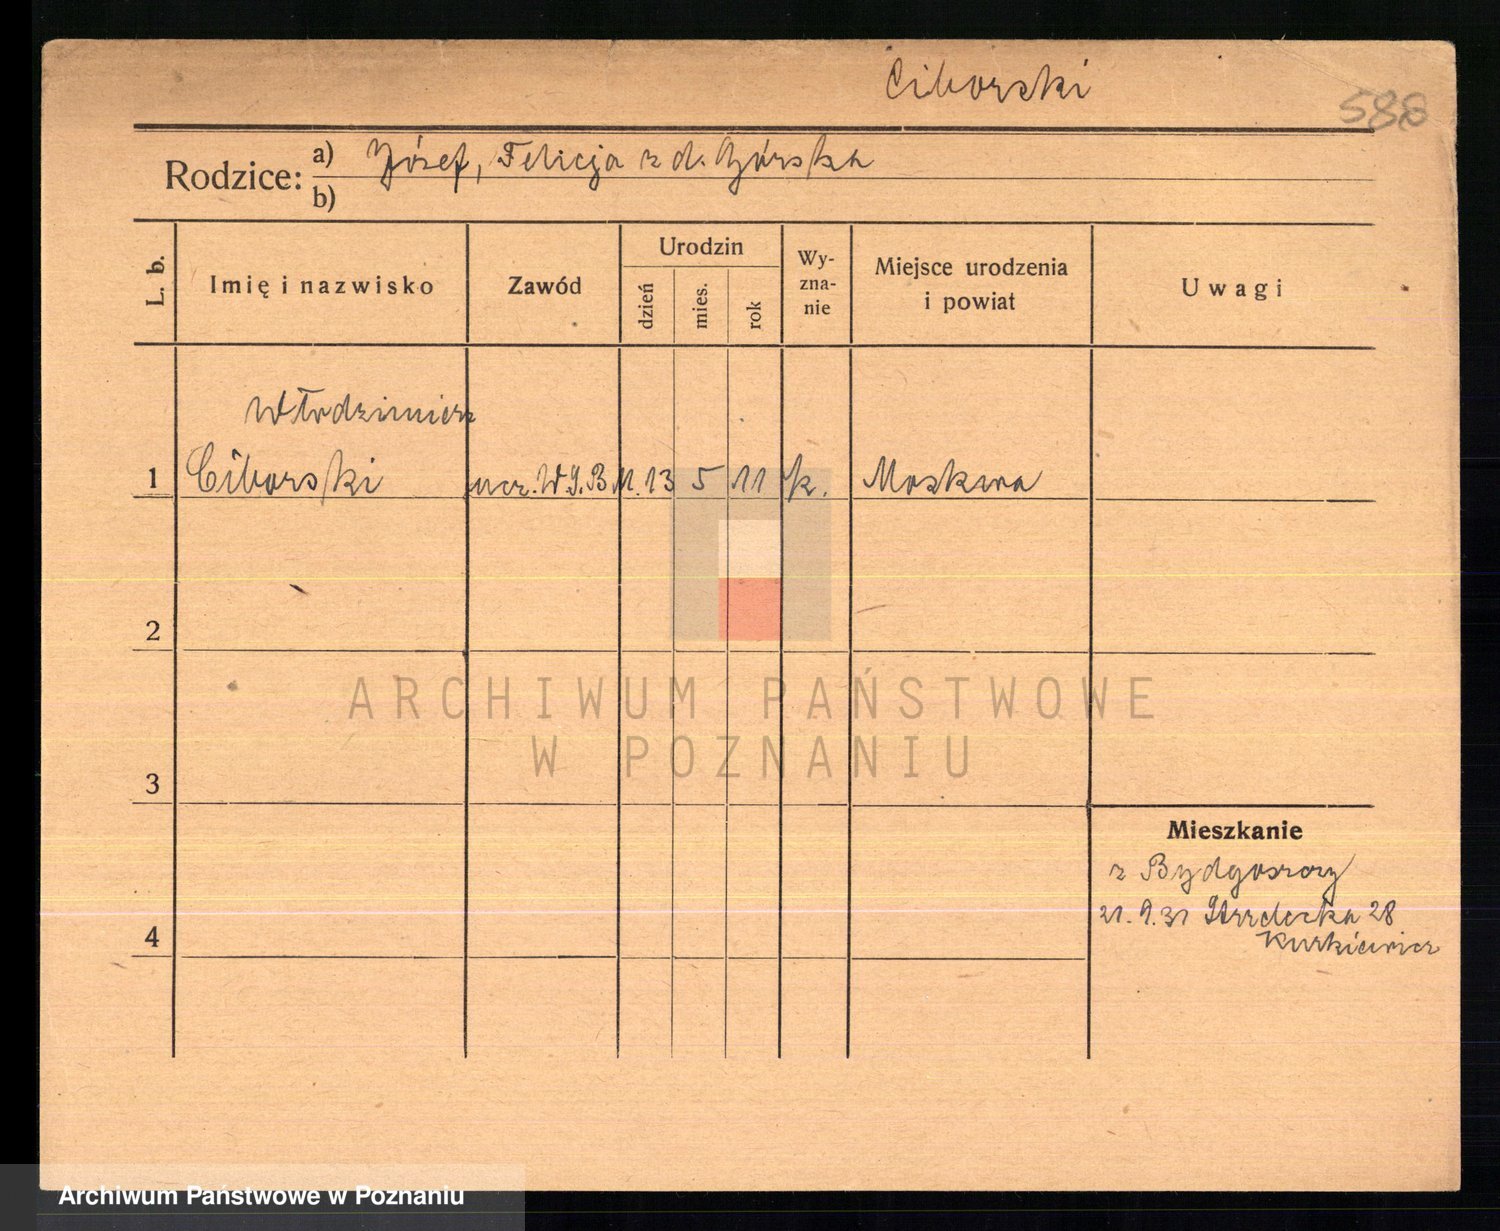 Ciborski
588
Rodzice: a) Józef, Felicja z d. Górska
b)
L. b.
Imię i nazwisko
Zawód
Urodzin
dzień
mies.
rok
Wy-
zna-
nie
Miejsce urodzenia
i powiat
Uwagi
Włodzimierz
1 Ciborski ucz. W.S.B.M. 13 5 11 rk. Moskwa
2
ARCHIWUM PAŃSTWOWE
W POZNANIU
3
Mieszkanie
z Bydgoszczy
21.9.31 Strzelecka 28
4
Kurkiewicz
Archiwum Państwowe w Poznaniu